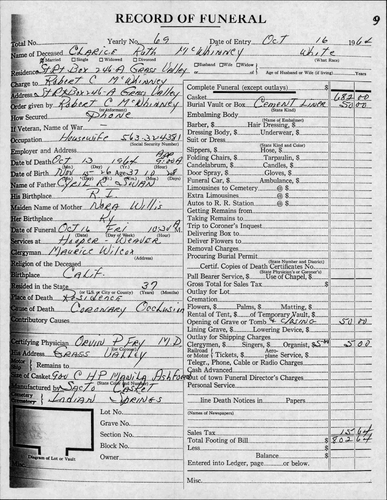 RECORD OF FUNERAL
9
Total No. Yearly No. 69 Date of Entry Oct 16 1964
Name of Deceased Clarice Ruth McWhinney White
(What Race)
Married Single Widowed Divorced Husband Wife Widow
Residence St Rt Box 246A Grass Valley Age of Husband or Wife (if living) Years
Charge to Robert C McWhinney
Address St Rt Box 246-A Grass Valley
Order given by Robert C McWhinney
How Secured Phone
If Veteran, Name of War
Occupation Housewife
Employer and Address
Date of Death Oct 13 1964
Date of Birth Nov 5 26 Age 37
Name of Father Cyril R
His Birthplace R I
Maiden Name of Mother Nora Willis
Her Birthplace Ky
Date of Funeral Oct 16 Fri 10:30 A
Services at Hooper-Weaver
Clergyman Maurice Wilcox
Religion of the Deceased
Birthplace Calif.
Resided in the State 37
Place of Death Residence
Cause of Death Coronary Occlusion
Contributory Causes
Certifying Physician Orvin P Fry M.D
His Address Grass Valley
Remains to
Size of Casket
Manufactured by Sacto Casket
Cemetery Indian Springs
Lot No.
Grave No.
Section No.
Block No.
Owner
Diagram of Lot or Vault
Complete Funeral (except outlays) $
Casket 682 00
Burial Vault or Box Cement Liner 50 00
(State Kind)
Embalming Body
(Name of Embalmer)
Barber, $ Hair Dressing, $
Dressing Body, $ Underwear, $
Suit or Dress
(State Kind and Color)
Slippers, $ Hose, $
Folding Chairs, $ Tarpaulin, $
Candelabrum, $ Candles, $
Door Spray, $ Gloves, $
Funeral Car, $ Ambulance, $
Limousines to Cemetery @ $
Extra Limousines @ $
Autos to R. R. Station @ $
Getting Remains from
Taking Remains to
Trip to Coroner's Inquest
Delivering Box to
Deliver Flowers to
Removal Charges
Procuring Burial Permit
(State Number and District)
Certif. Copies of Death Certificates No.
Pall Bearer Service, $ Use of Chapel, $
Gross Total for Sales Tax $
Outlay for Lot
Cremation
Flowers, $ Palms, $ Matting, $
Rental of Tent, $ of Temporary Vault, $
Opening of Grave or Tomb & Closing 50 00
Lining Grave, $ Lowering Device, $
Outlay for Shipping Charges
Clergymen, $ Singers, $ Organist, $5.00 5 00
Railroad or Motor Tickets, $ Aeroplane Service, $
Telegr., Phone, Cable or Radio Charges
Cash Advanced
Out of town Funeral Director's Charges
Personal Service
line Death Notices in Papers
(Names of Newspapers)
Sales Tax $ 15 64
Total Footing of Bill $ 802 64
Less $
Balance $
Entered into Ledger, page or below.
Misc.